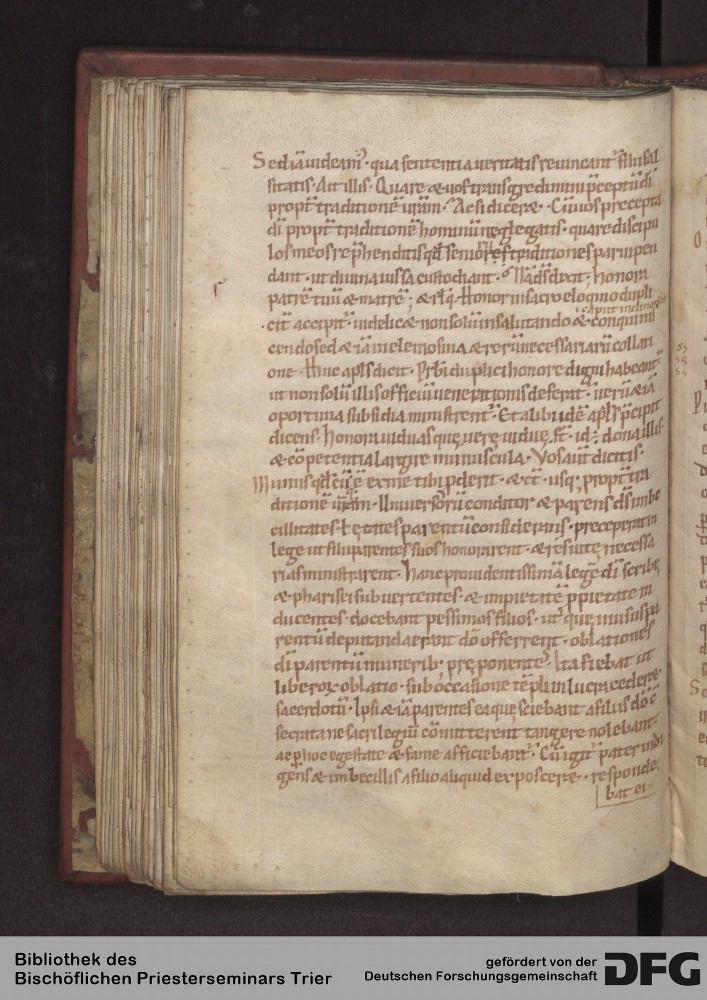 Sed iā uideam᷒ · qua sententia ueritatis reuincant̄ filii fal
sitatis. Ait illis. Quare & uos transgredimini p̄ceptū dī
propt̄ traditionē urām. Ac si dicer&. Cū uos precepta
dī propt̄ traditionē hominū neglegatis. quare discipu
los meos rep̄henditis qđ seniorū traditiones paruipen
dant. ut diuina iussa custodiant. Nā d̄s dixit. honora
patrē tuū & matrē; & rłq. Honor in sacro eloquio dupli
cit̄ accipit̄. uidelic& non solū in salutando &
capitis inclina
cendo sed & iā in elemosina & rerū necessariarū collati
one. Hinc apłs dicit. Prb̄i duplici honore digni habeant̄.
ut non solū illis officiū uenerationis deferat̄. uerū & iā
oportuna subsidia ministrent̄. Et alibi idē apłs p̄cipit
dicens. honora uiduas quę uere uiduę sт̄. id ÷ dona illis
& cōpetentia largire munuscula. Vos aūt dicitis.
Munus qđcūq; ē ex me tibi p̱derit. & ct̄. usq; propt̄ tra
ditionē urām. Uniuersorū conditor & parens d̄s imbe
cillitates ł &ates parentū considerans. preceperat in
lege ut filii parentes suos honorarent. & res uitę necessa
rias ministrarent. Hanc prouidentissimā legē dī scribę
& pharisei subuertentes. & impietatē p̱ pietate in
ducentes. docebant pessimos filios. ut si quę in usus pa
rentū deputanda erant dō offerrent. oblationes
dī parentū munerib; pręponentes. Ita fiebat ut
liberorꝝ oblatio. sub occasione tēpli in lucra ceder&
sacerdotū. Ipsi & iā parentes ea que sciebant a filiis dō cō
secrata ne sacrilegiū cōmitterent tangere nolebant.
ac p̱ hoc egestate & fame afficiebant̄. Cū igit̄ pater indi
gens & imbecillis a filio aliquid exposcere&. responde
bat ei.
Bibliothek des
Bischöflichen Priesterseminars Trier
gefördert von der
Deutschen Forschungsgemeinschaft
DFG